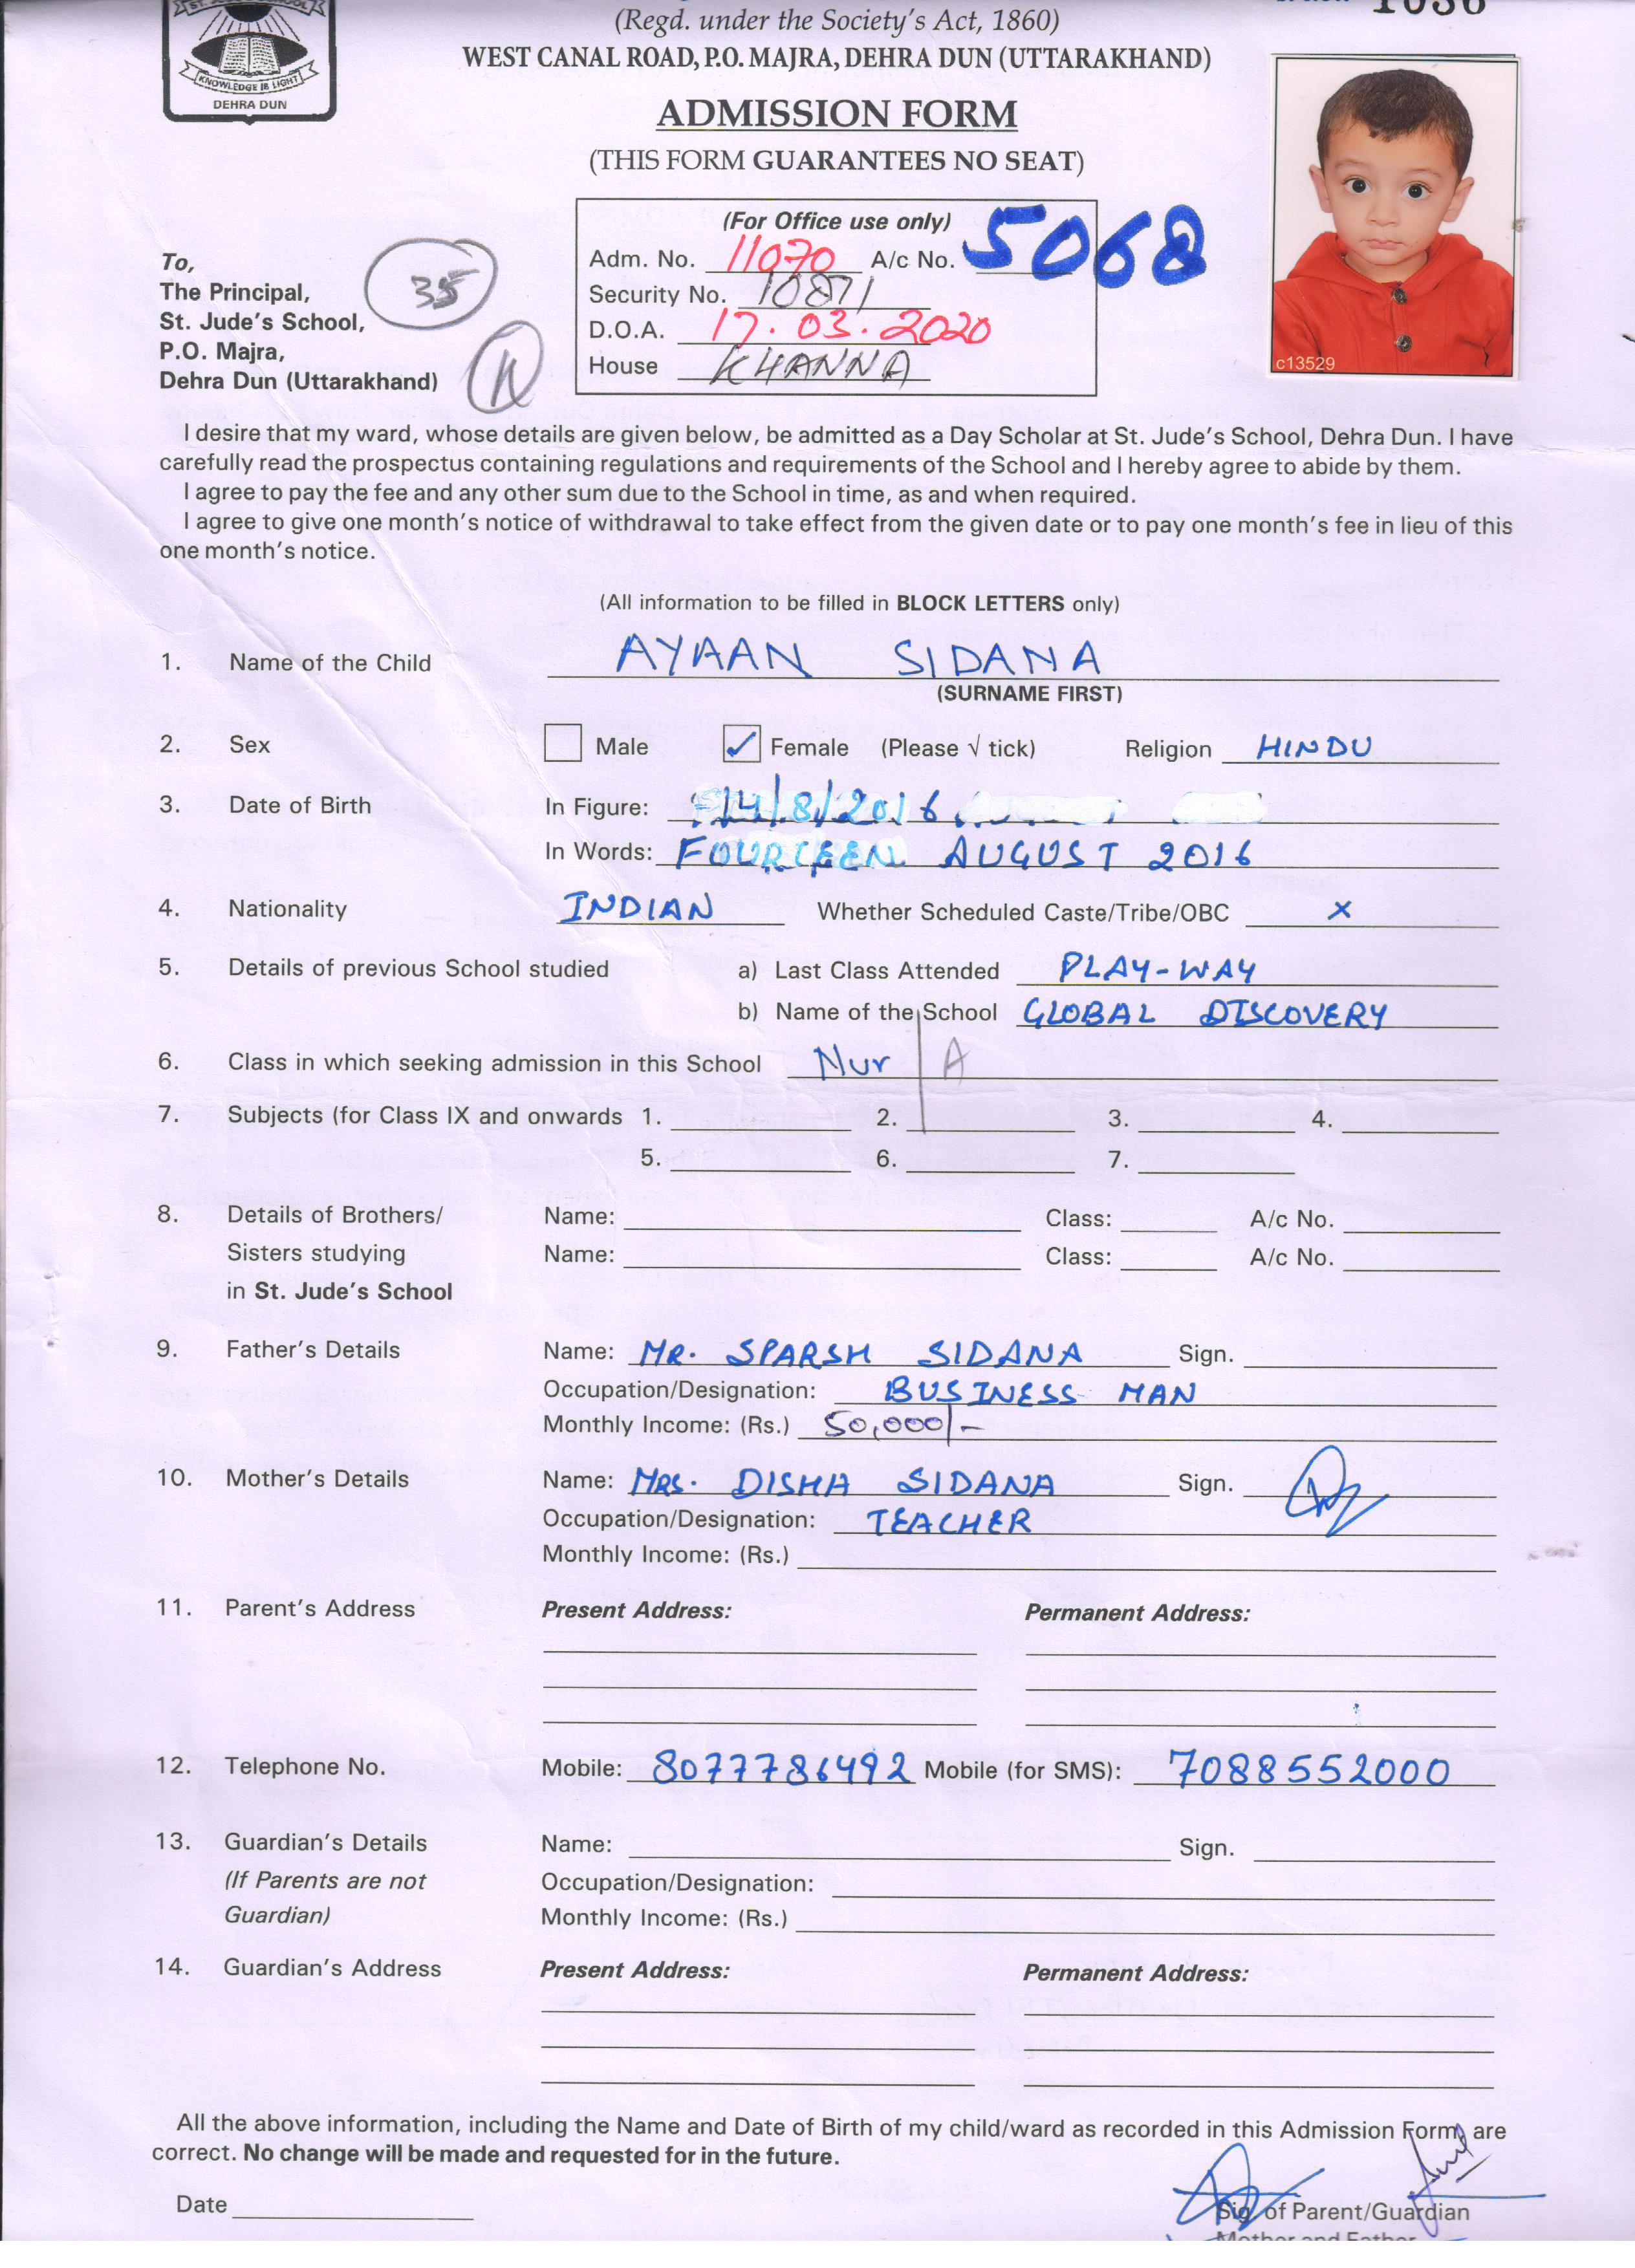 (Regd. under the Society's Act, 1860)
WEST CANAL ROAD, P.O. MAJRA, DEHRA DUN (UTTARAKHAND)
KNOWLEDGE IS LIGHT
DEHRA DUN
ADMISSION FORM
(THIS FORM GUARANTEES NO SEAT)
c13529
(For Office use only)
Adm. No. 11070 A/c No. 5068
Security No. 10871
D.O.A. 17.03.2020
House KHANNA
To,
The Principal,
St. Jude's School,
P.O. Majra,
Dehra Dun (Uttarakhand)
35
I desire that my ward, whose details are given below, be admitted as a Day Scholar at St. Jude's School, Dehra Dun. I have
carefully read the prospectus containing regulations and requirements of the School and I hereby agree to abide by them.
I agree to pay the fee and any other sum due to the School in time, as and when required.
I agree to give one month's notice of withdrawal to take effect from the given date or to pay one month's fee in lieu of this
one month's notice.
(All information to be filled in BLOCK LETTERS only)
1. Name of the Child AYAAN SIDANA
(SURNAME FIRST)
2. Sex Male ✓ Female (Please √ tick) Religion HINDU
3. Date of Birth In Figure: 14/8/2016
In Words: FOURTEEN AUGUST 2016
4. Nationality INDIAN Whether Scheduled Caste/Tribe/OBC x
5. Details of previous School studied a) Last Class Attended PLAY-WAY
b) Name of the School GLOBAL DISCOVERY
6. Class in which seeking admission in this School Nur A
7. Subjects (for Class IX and onwards 1. 2. 3. 4.
5. 6. 7.
8. Details of Brothers/ Name: Class: A/c No.
Sisters studying Name: Class: A/c No.
in St. Jude's School
9. Father's Details Name: MR. SPARSH SIDANA Sign.
Occupation/Designation: BUSINESS MAN
Monthly Income: (Rs.) 50,000/-
10. Mother's Details Name: MRS. DISHA SIDANA Sign.
Occupation/Designation: TEACHER
Monthly Income: (Rs.)
11. Parent's Address Present Address: Permanent Address:
12. Telephone No. Mobile: 8077786492 Mobile (for SMS): 7088552000
13. Guardian's Details Name: Sign.
(If Parents are not Occupation/Designation:
Guardian) Monthly Income: (Rs.)
14. Guardian's Address Present Address: Permanent Address:
All the above information, including the Name and Date of Birth of my child/ward as recorded in this Admission Form, are
correct. No change will be made and requested for in the future.
Date
Sig. of Parent/Guardian
Mother and Father